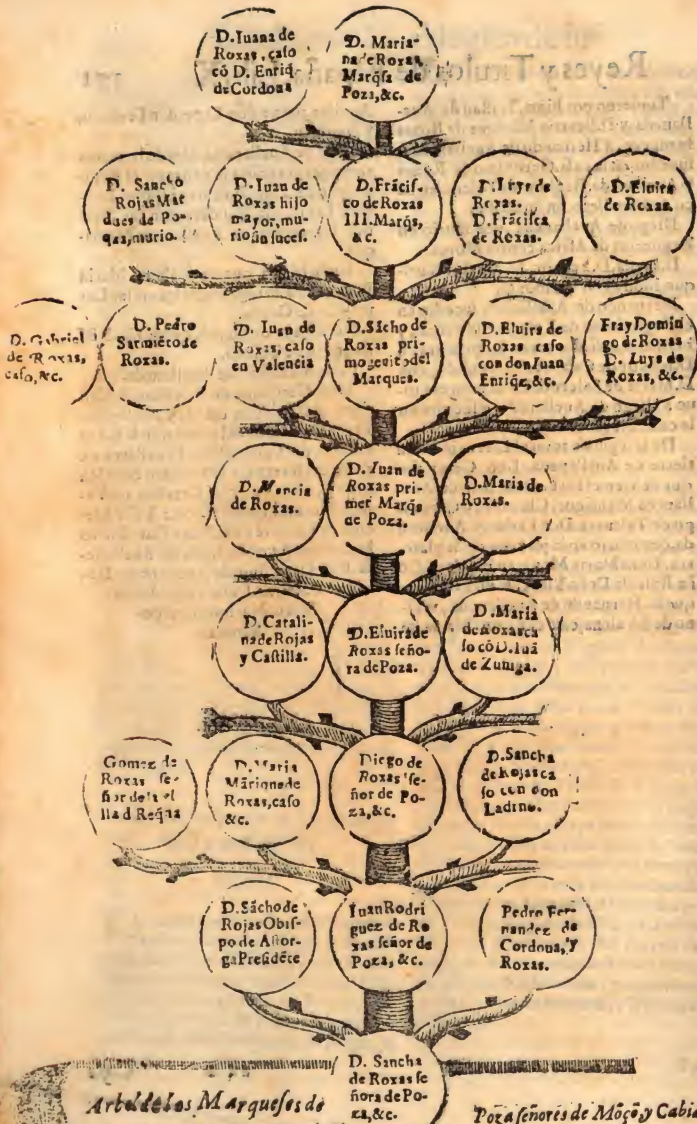 D. Iuana de
Roxas, caso
có D. Enriq̃
de Cordoua
D. Maria-
na de Roxas,
Marq̃sa de
Poza, &c.
Reyes y Titulos de
D. Sancho
Rojas Mar
ques de Po-
murio.
D. Iuan de
Roxas hijo
mayor, mu-
rio sin suces.
D. Frãcis-
co de Roxas
III. Marq̃s,
&c.
D. Luys de
Roxas.
D. Frãcisca
de Roxas.
D. Eluira
de Roxas.
D. Gabriel
de Roxas,
caso, &c.
D. Pedro
Sarmiẽto de
Roxas.
D. Iuan de
Roxas, caso
en Valencia
D. Sãcho de
Roxas pri-
mogenito del
Marques.
D. Eluira de
Roxas caso
con don Iuan
Enriq̃z, &c.
Fray Domin
go de Roxas
D. Luys de
Roxas, &c.
D. Marcia
de Roxas.
D. Iuan de
Roxas pri-
mer Marq̃s
de Poza.
D. Maria de
Roxas.
D. Catali-
na de Rojas
y Castilla.
D. Eluira de
Roxas seño-
ra de Poza.
D. Maria
de Roxas ca
so cõ D. Iuã
de Zuniga.
Gomez de
Roxas se-
ñor de
D. Maria
Mãrique de
Roxas, caso
&c.
Diego de
Roxas se-
ñor de Po-
za, &c.
D. Sancha
de Rojas ca
so con don
Ladino.
D. Sãcho de
Rojas Obis-
po de Astor-
ga Presidẽte
Iuan Rodri
guez de Ro
xas señor de
Poza, &c.
Pedro Fer-
nandez de
Cordoua, y
Roxas.
D. Sancha
de Roxas se
ñora de Po-
za, &c.
Arbol de los Marqueses de
Poza señores de Mõçõ, y Cabia